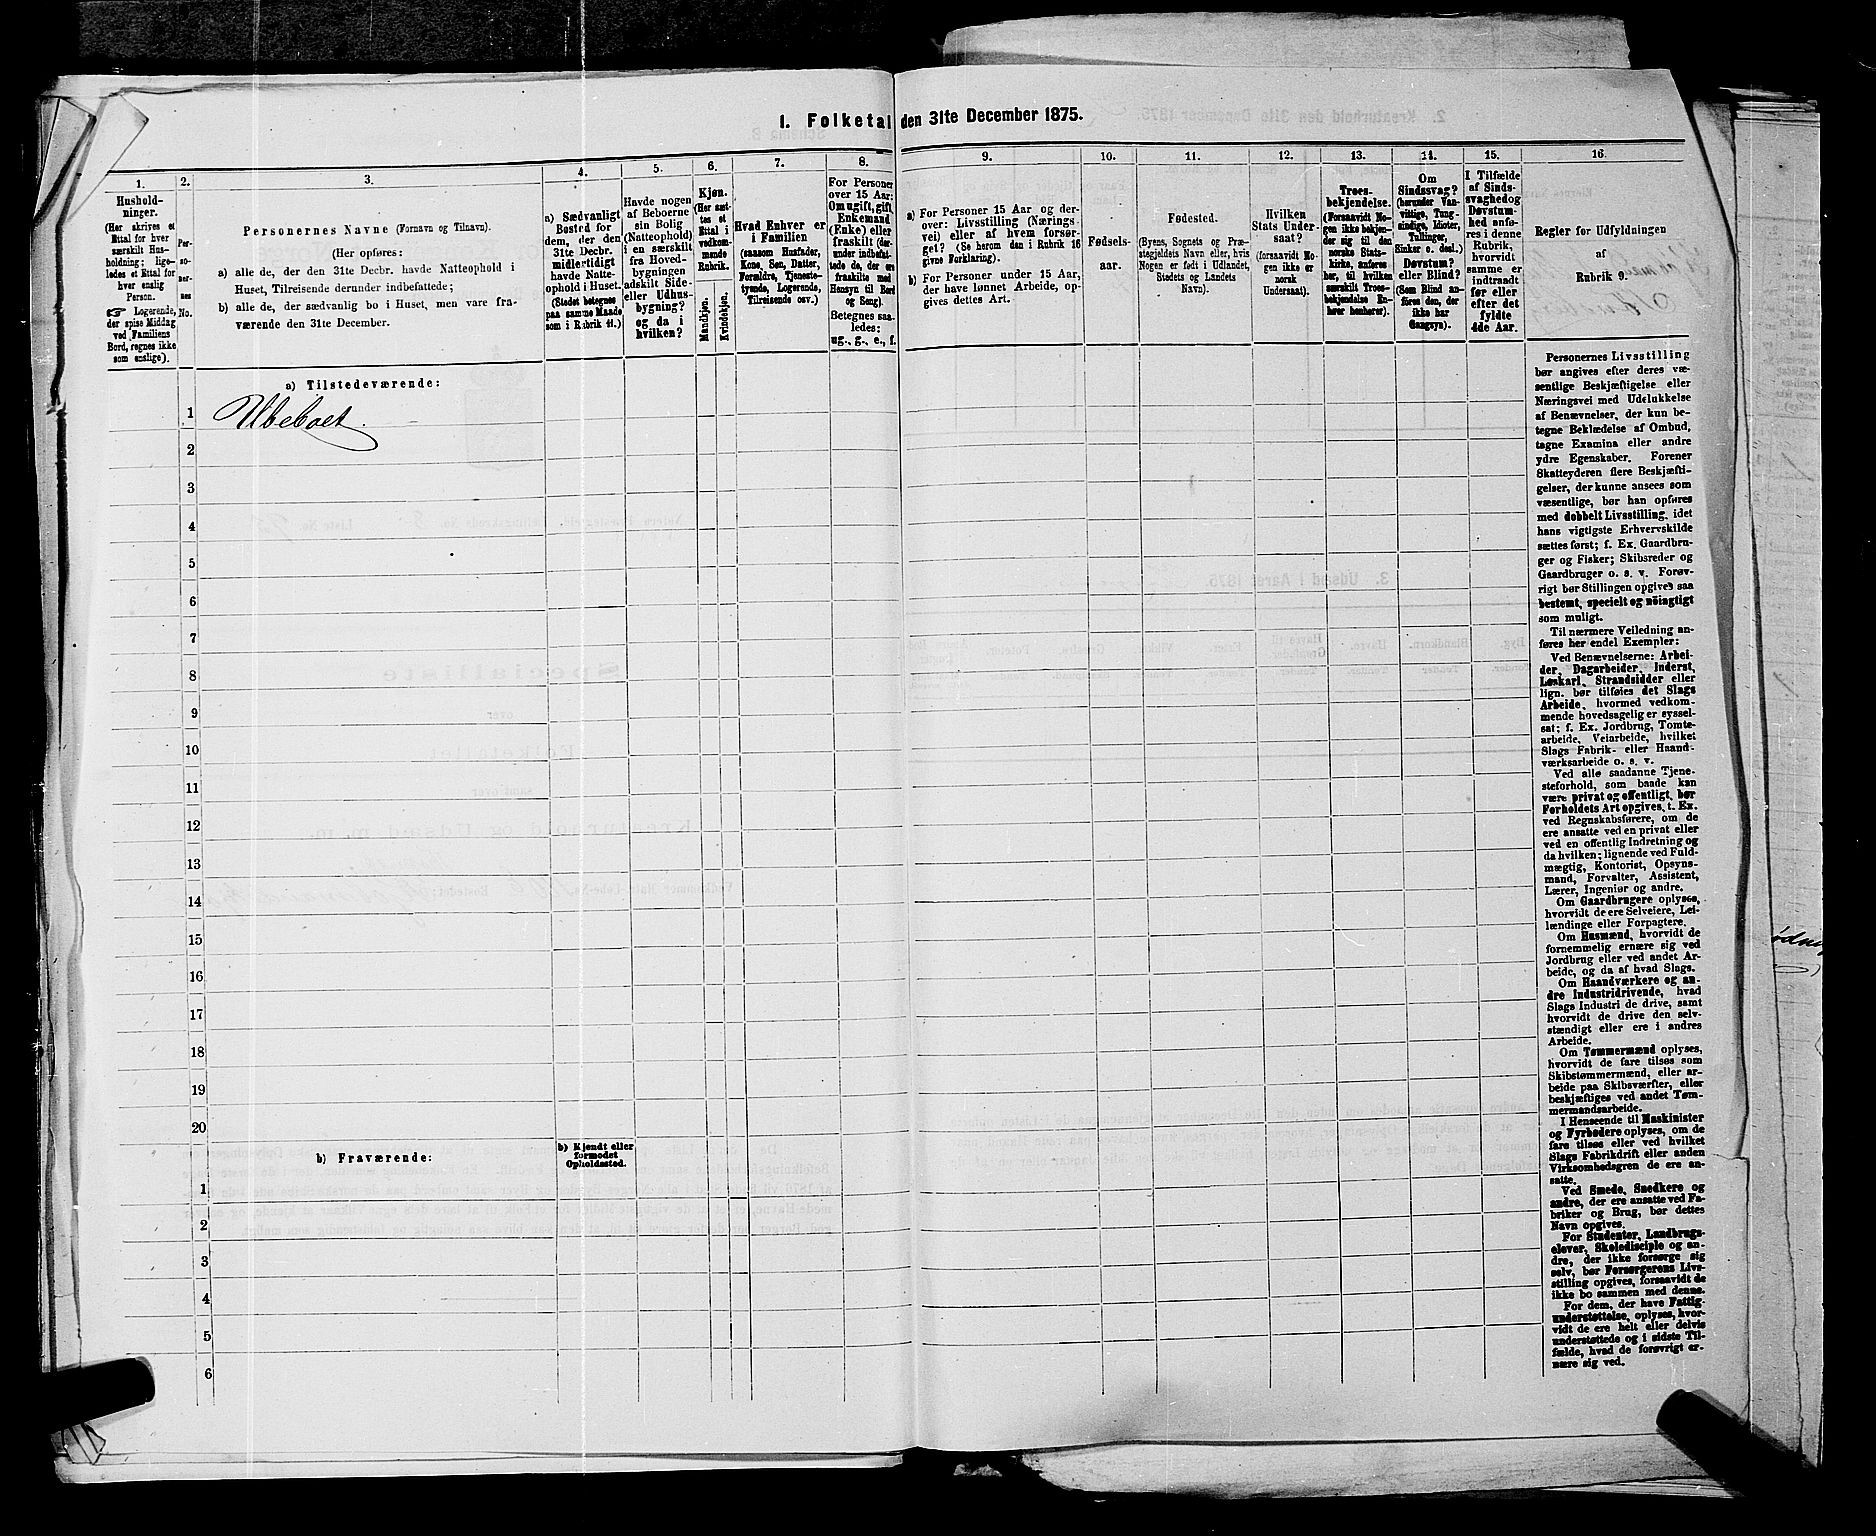 1. Folketal den 31te December 1875.
1.
Hushold-
ninger.
(Her skrives et
Ettal for hver
særskilt Hus-
holdning; lige-
ledes et Ettal for
hver enslig
Person.
☞ Logerende,
der spise Middag
ved Familiens
Bord, regnes ikke
som enslige).
2.
Per-
so-
ner-
nes
No.
3.
Personernes Navne (Fornavn og Tilnavn).
(Her opføres:
a) alle de, der den 31te Decbr. havde Natteophold i
Huset, Tilreisende derunder indbefattede;
b) alle de, der sædvanlig bo i Huset, men vare fra-
værende den 31te December.
4.
a) Sædvanligt
Bosted for
dem, der den
31te Decbr.
midlertidigt
havde Natte-
ophold i Huset.
(Stedet betegnes
paa samme Maade
som i Rubrik 11.)
5.
Havde nogen
af Beboerne
sin Bolig
(Natteophold)
i en særskilt
fra Hoved-
bygningen
adskilt Side-
eller Udhus-
bygning?
og da i
hvilken?
6.
Kjøn.
(Her sæt-
tes et
Ettal i
vedkom-
mende
Rubrik.
Mandkjøn.
Kvindekjøn.
7.
Hvad Enhver er
i Familien
(saasom Husfader,
Kone, Søn, Datter,
Forældre, Tjeneste-
tyende, Logerende,
Tilreisende osv.)
8.
For Personer
over 15 Aar:
Om ugift, gift,
Enkemand
(Enke) eller
fraskilt (der-
under indbefat-
tede de, der ere
fraskilte med
Hensyn til Bord
og Seng).
Betegnes saa-
ledes:
ug., g., e., f.
9.
a) For Personer 15 Aar og der-
over: Livsstilling (Nærings-
vei) eller af hvem forsør-
get? (Se herom den i Rubrik 16
givne Forklaring).
b) For Personer under 15 Aar,
der have lønnet Arbeide, op-
gives dettes Art.
10.
Fødsels-
aar.
11.
Fødested.
(Byens, Sognets og Præ-
stegjeldets Navn eller, hvis
Nogen er født i Udlandet,
Stedets og Landets
Navn).
12.
Hvilken
Stats Under-
saat?
(forsaavidt No-
gen ikke er
norsk
Undersaat).
13.
Troes-
bekjendelse.
(Forsaavidt No-
gen ikke bekjen-
der sig til den
norske Stats-
kirke, anføres
her, til hvilken
særskilt Troes-
bekjendelse En-
hver henhører).
14.
Om
Sindssvag?
(herunder Van-
vittige, Tung-
sindige, Idioter,
Tullinger,
Sinker o. desl.)
Døvstum?
eller Blind?
(Som Blind an-
føres den, der
ikke har
Gangsyn).
15.
I Tilfælde
af Sinds-
svaghed og
Døvstum-
hed anfø-
res i denne
Rubrik,
hvorvidt
samme er
indtraadt
før eller
efter det
fyldte
4de Aar.
16.
Regler for Udfyldningen
af
Rubrik 9.
a) Tilstedeværende:
1 Ubeboet.
2
3
4
5
6
7
8
9
10
11
12
13
14
15
16
17
18
19
20
b) Fraværende:
b) Kjendt eller
formodet
Opholdssted.
1
2
3
4
5
6
Personernes Livsstilling
bør angives efter deres væ-
sentlige Beskjæftigelse eller
Næringsvei med Udelukkelse
af Benævnelser, der kun be-
tegne Beklædelse af Ombud,
tagne Examina eller andre
ydre Egenskaber. Forener
Skatteyderen flere Beskjæfti-
gelser, der kunne ansees som
væsentlige, bør han opføres
med dobbelt Livsstilling, idet
hans vigtigste Erhvervskilde
sættes først; f. Ex. Gaardbru-
ger og Fisker; Skibsreder og
Gaardbruger o. s. v. Forøv-
rigt bør Stillingen opgives saa
bestemt, specielt og nöiagtigt
som muligt.
Til nærmere Veiledning an-
føres her endel Exempler:
Ved Benævnelserne: Arbei-
der, Dagarbeider, Inderst,
Løskarl, Strandsidder eller
lign. bør tilføies det Slags
Arbeide, hvormed vedkom-
mende hovedsagelig er syssel-
sat; f. Ex. Jordbrug, Tomte-
arbeide, Veiarbeide, hvilket
Slags Fabrik- eller Haand-
værksarbeide o. s. v.
Ved alle saadanne Tjene-
steforhold, som baade kan
være privat og offentligt, bør
Forholdets Art opgives, t. Ex.
ved Regnskabsførere, om de
ere ansatte ved en privat eller
ved en offentlig Indretning og
da hvilken; lignende ved Fuld-
mægtig, Kontorist, Opsyns-
mand, Forvalter, Assistent,
Lærer, Ingeniør og andre.
Om Gaardbrugere oplyses,
hvorvidt de ere Selveiere, Lei-
lændinge eller Forpagtere.
Om Husmænd, hvorvidt de
fornemmelig ernære sig ved
Jordbrug eller ved andet Ar-
beide, og da af hvad Slags.
Om Haandværkere og an-
dre Industridrivende, hvad
Slags Industri de drive, samt
hvorvidt de drive den selv-
stændigt eller ere i andres
Arbeide.
Om Tømmermænd oplyses,
hvorvidt de fare tilsøs som
Skibstømmermænd, eller ar-
beide paa Skibsværfter, eller
beskjæftiges ved andet Tøm-
mermandsarbeide.
I Henseende til Maskinister
og Fyrbødere oplyses, om de
fare tilsøs eller ved hvilket
Slags Fabrikdrift eller anden
Virksomhedsgren de ere an-
satte.
Ved Smede, Snedkere og
andre, der ere ansatte ved Fa-
briker og Brug, bør dettes
Navn opgives.
For Studenter, Landbrugs-
elever, Skoledisciple og an-
dre, der ikke forsørge sig
selv, bør Forsørgerens Livs-
stilling opgives, forsaavidt de
ikke bo sammen med denne.
For dem, der have Fattig-
understøttelse, oplyses, hvor-
vidt de ere helt eller delvis
understøttede og i sidste Til-
fælde, hvad de forøvrigt er-
nære sig ved.